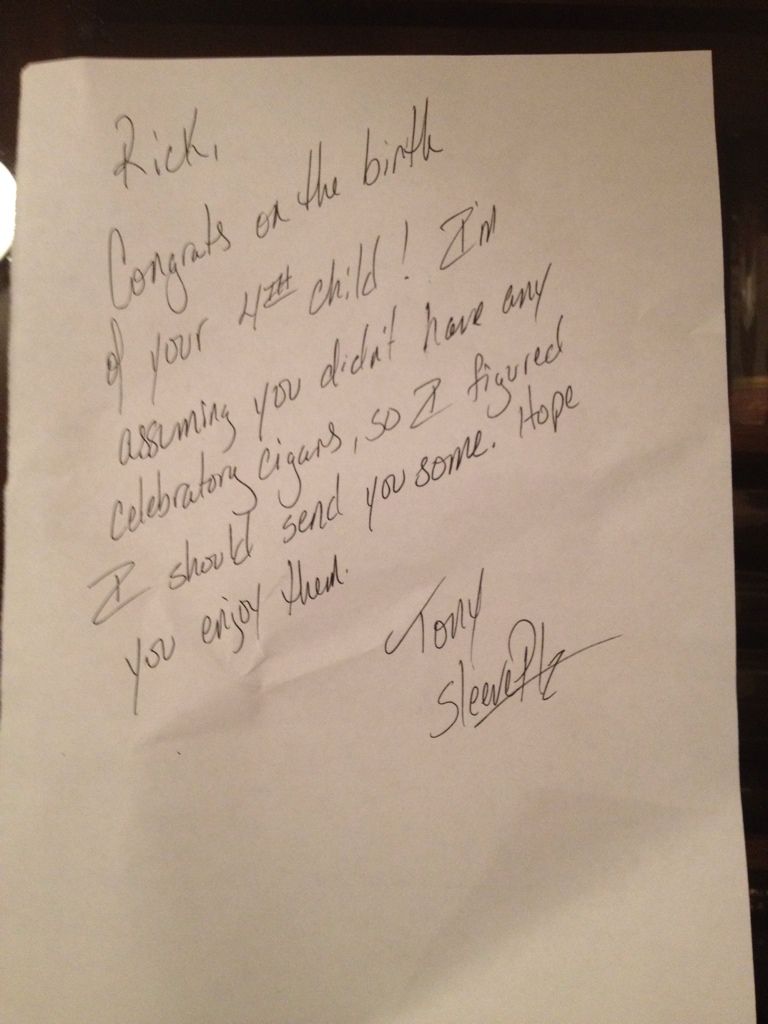 Rick,
Congrats on the birth
of your 4TH child! I'm
assuming you didn't have any
celebratory cigars, so I figured
I should send you some. Hope
you enjoy them.
Tony
SleevePlz